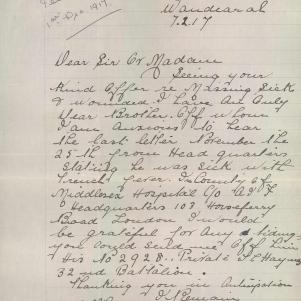 Wandearah
7.2.17
1st Dec 1917.
Dear Sir Or Madam
Seeing your
Kind Offer re Missing Sick
& wounded I have An Only
Dear Brother. Off whom
I am Anxious to hear
the last letter November the
25th from Head quarters
Stating he was Sick with
Trench fever in County of
Middlesex Hospital C/o A.I.F
Headquarters 103 Horseferry
Road London I would
be grateful for Any tidings
you could Send me Off him
His No 2928. Private
32nd Battalion.
Thanking you in Anticipation
I Remain